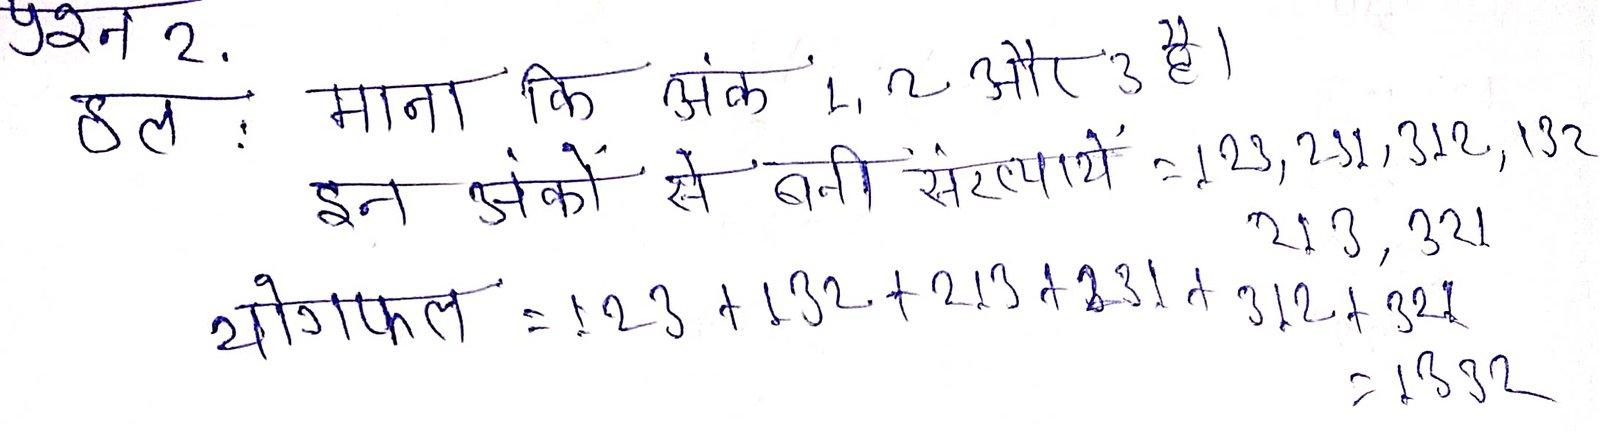 प्रश्न 2.
हल : माना कि अंक 1, 2 और 3 है।
इन अंकों से बनी संख्यायें = 123, 231, 312, 132
213, 321
योगफल = 123 + 132 + 213 + 231 + 312 + 321
= 1332